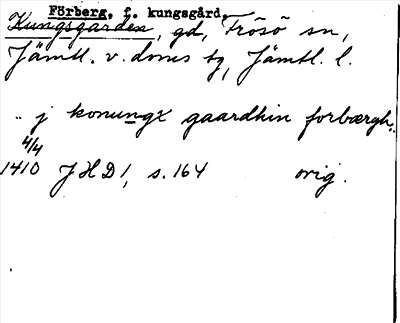 Förberg, f. kungsgård.
Kungsgården, gd, Frösö sn,
Jämtl. v. doms tg, Jämtl. l.
.. j konungx gaardhin forbærgh..
4/4
1410 JHD 1, s. 164 orig.